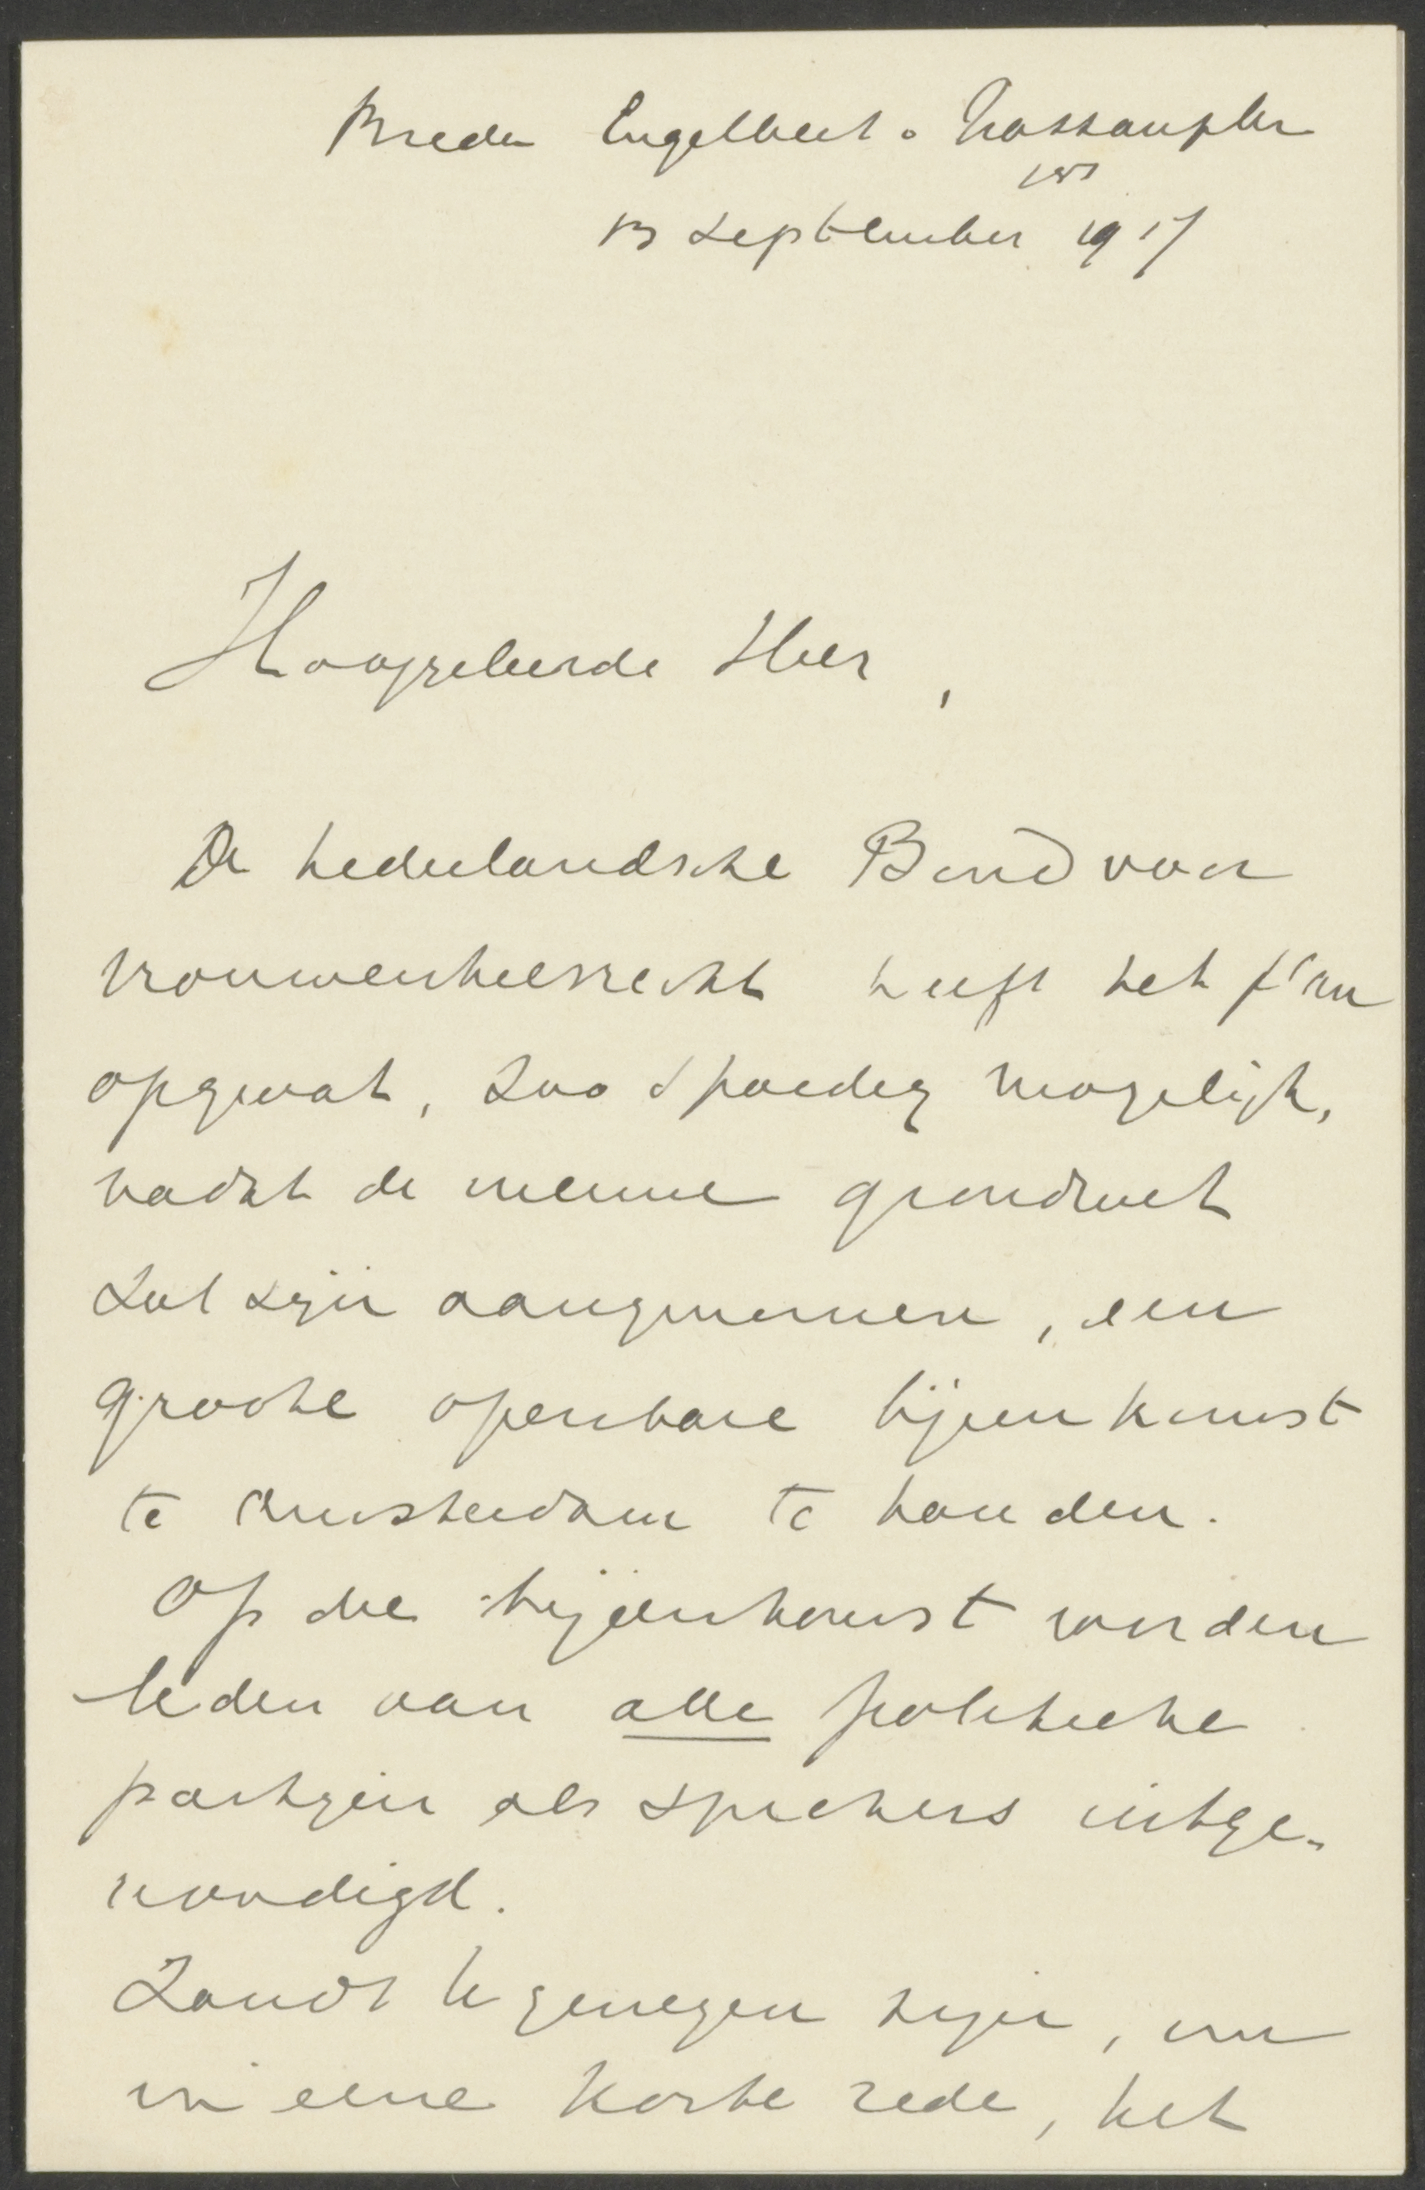 Breda Engelbert v Nassauplein
13 September 1917
Hooggeleerde Heer,
De Nederlandsche Bond voor
Vrouwenkiesrecht heeft het plan
opgevat, zoo spoedig mogelijk,
nadat de nieuwe grondwet
zal zijn aangenomen, een
groote openbare bijeenkomst
te Amsterdam te houden.
Op die bijeenkomst worden
leden van alle politieke
partijen als sprekers uitge-
noodigd.
Zoudt U genegen zijn, om
in eene korte rede, het